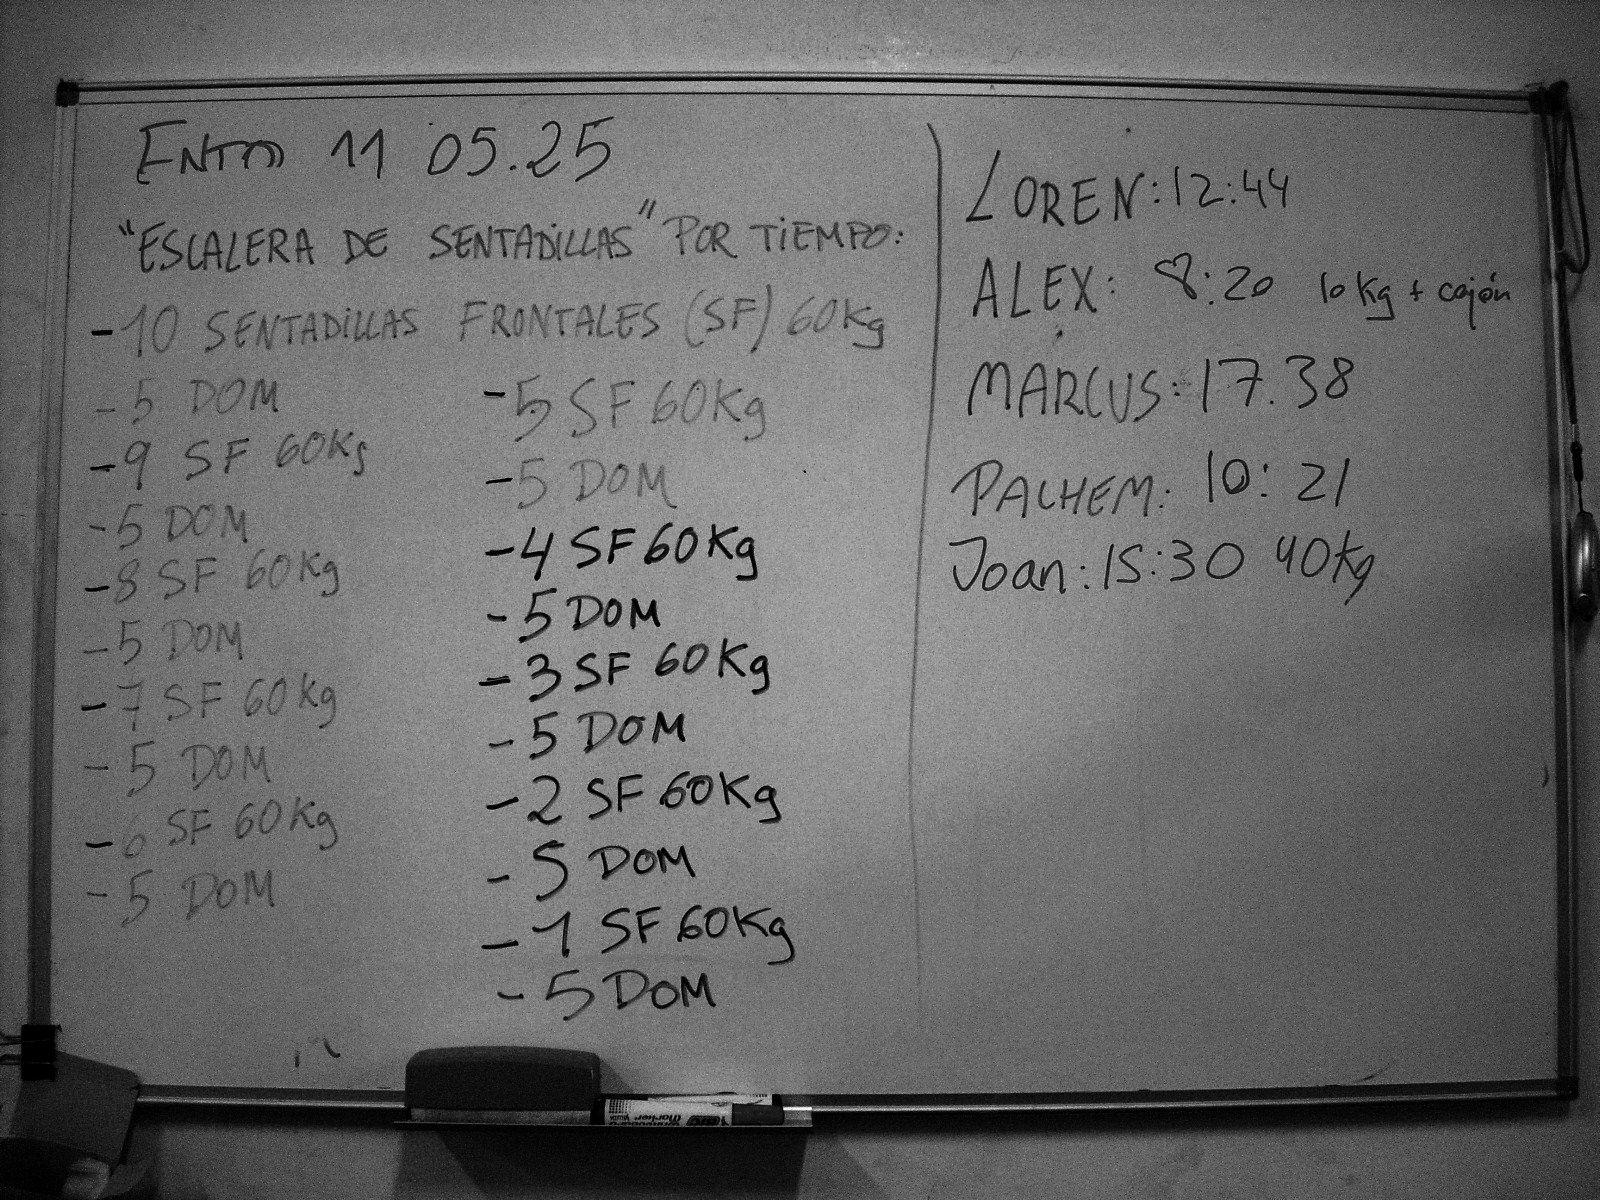 ENTTO 11 05.25
"ESCALERA DE SENTADILLAS" POR TIEMPO:
-10 SENTADILLAS FRONTALES (SF) 60Kg
-5 DOM
-9 SF 60Kg
-5 DOM
-8 SF 60Kg
-5 DOM
-7 SF 60Kg
-5 DOM
-6 SF 60Kg
-5 DOM
-5 SF 60Kg
-5 DOM
-4 SF 60Kg
-5 DOM
-3 SF 60Kg
-5 DOM
-2 SF 60Kg
-5 DOM
-1 SF 60Kg
-5 DOM
LOREN: 12:44
ALEX: 8:20 10 kg + cajón
MARCUS: 17.38
PALHEM: 10:21
Joan: 15:30 40Kg